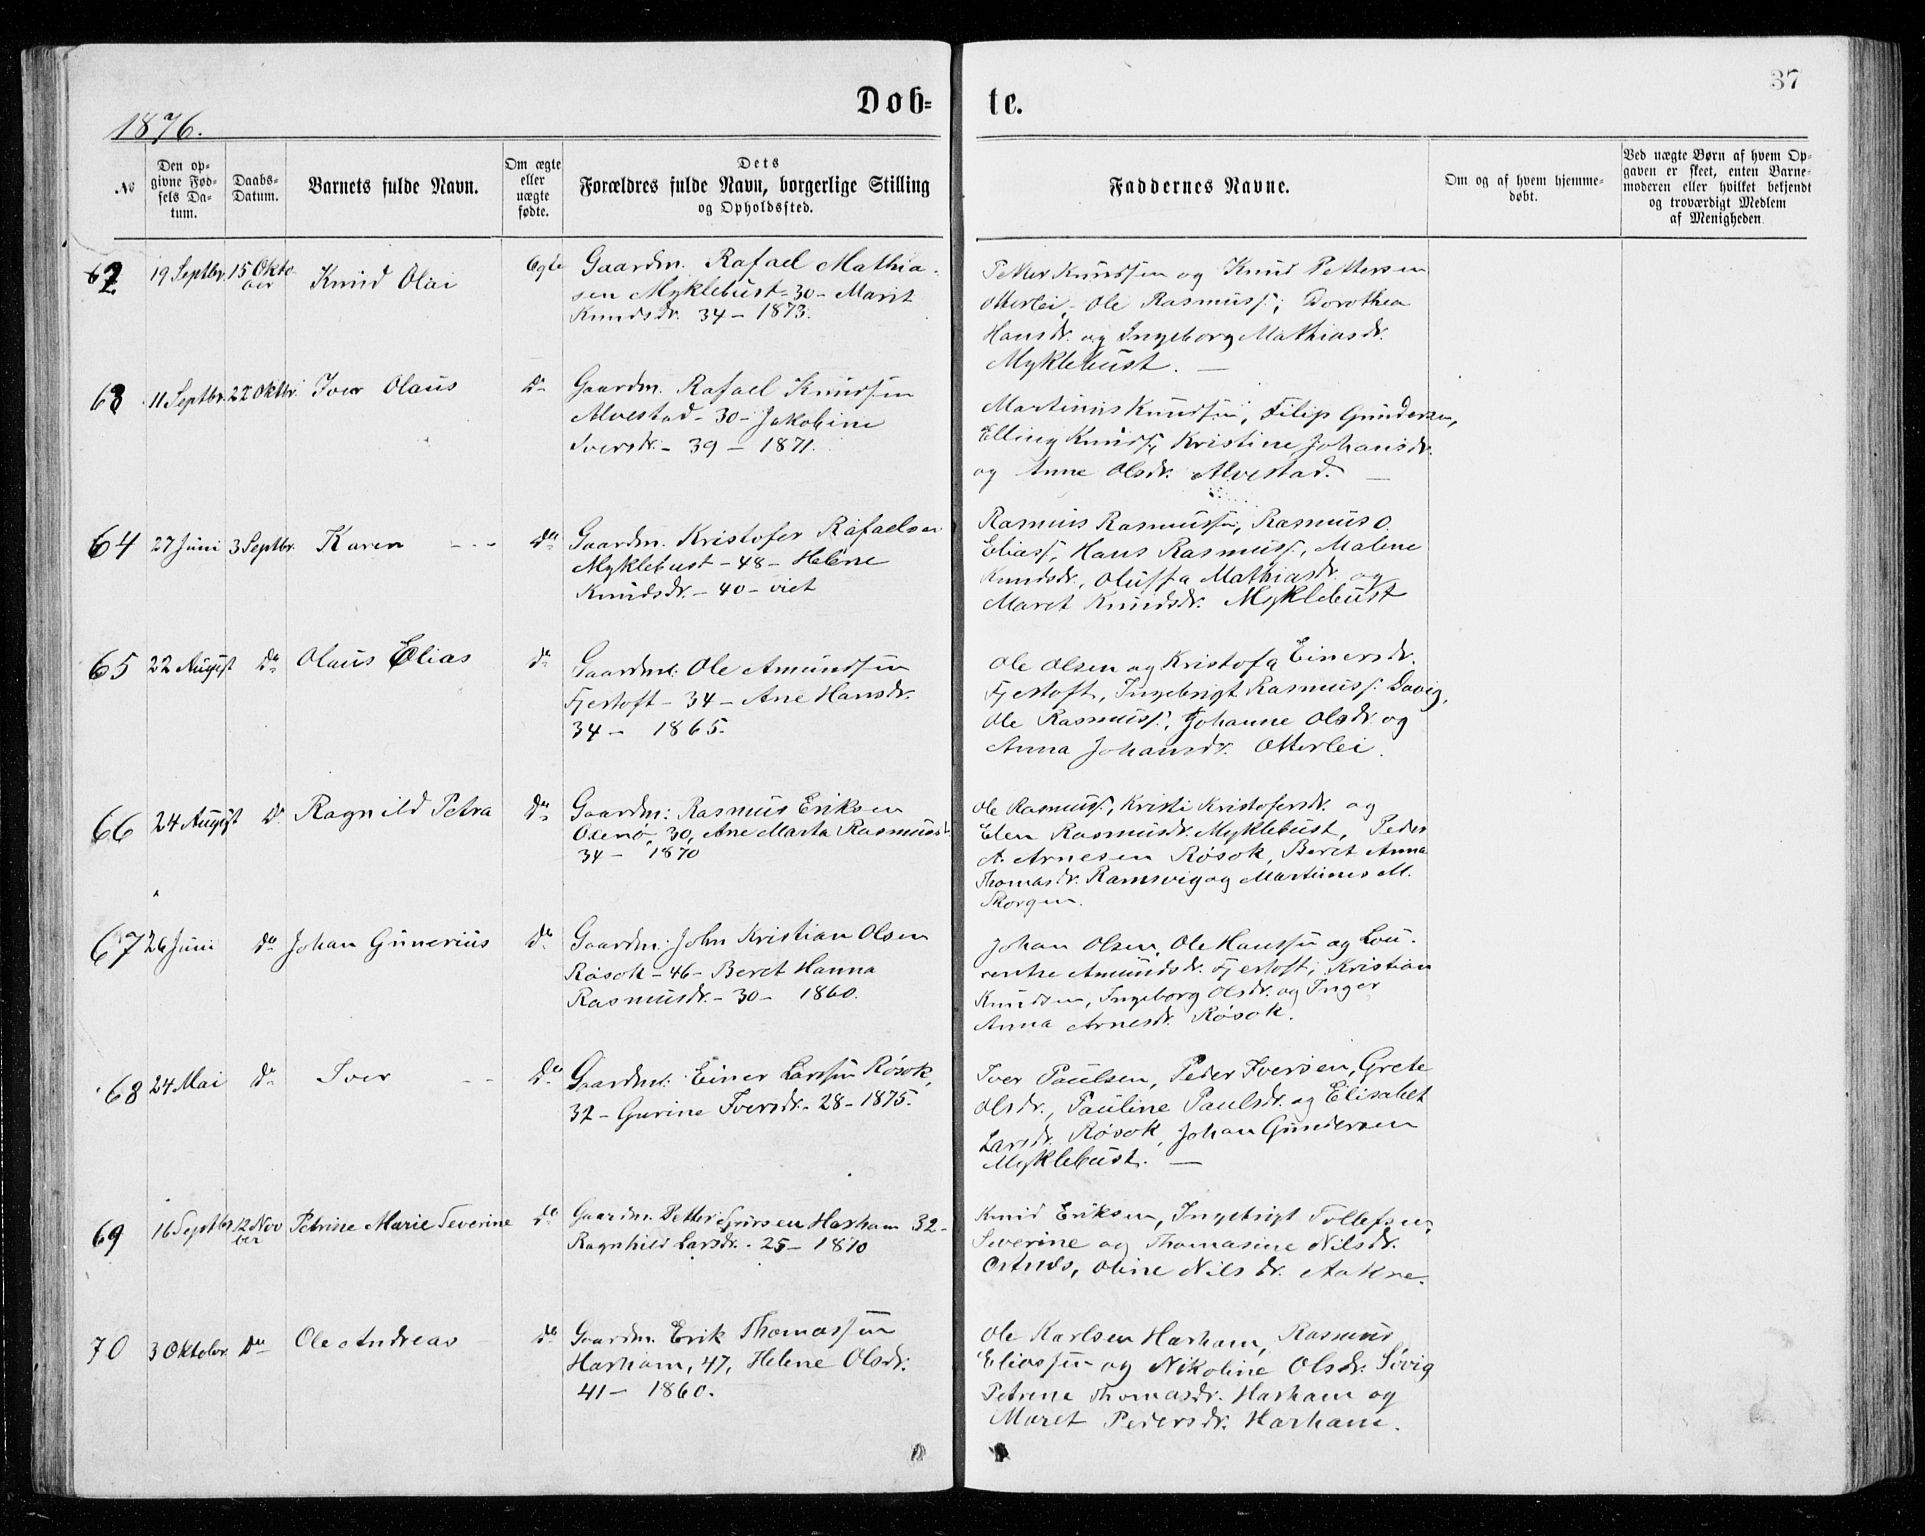 Døb=
te.
37
1876.
No
Den op-
givne Fød-
sels Da-
tum.
Daabs-
Datum.
Barnets fulde Navn.
Om ægte
eller
uægte
fødte.
Dets
Forældres fulde Navn, borgerlige Stilling
og Opholdssted.
Faddernes Navne.
Om og af hvem hjemme-
døbt.
Ved uægte Børn af hvem Op-
gaven er skeet, enten Barne-
moderen eller hvilket bekjendt
og troværdigt Medlem
af Menigheden
62
19 Septbr.
15 Okto
ber
Knud Olai
Ægte
Gaardm. Rafael Mathia-
sen Myklebust - 30 - Marit
Knudsdr. 34 - 1873.
Petter Knudsen og Knud Pettersen
Otterlei, Ole Rasmuss, Dorothea
Hansdr. og Ingeborg Mathiasdr.
Myklebust. -
63
11 Septbr.
22 Oktbr
Iver Olaus
Do
Gaardm. Rafael Knudsen
Alvestad - 30 - Jakobine
Iversdr. - 39 - 1871.
Martinus Knudsen, Filip Gundersen,
Elling Knuds, Kristine Johansdr.
og Anne Olsdr. Alvestad. -
64
27 Juni
3 Septbr.
Karen - - -
Do
Gaardm. Kristofer Rafaelsen
Myklebust - 48 - Helene
Knudsdr. - 40 - viet
Rasmus Rasmussen, Rasmus O.
Eliass, Hans Rasmuss, Malene
Knudsdr., Oluffa Mathiasdr. og
Maret Knudsdr. Myklebust
65
22 August
Do
Olaus Elias
Do
Gaardm: Ole Amundsen
Fjertoft - 34 - Ane Hansdr.
34 - 1865.
Ole Olsen og Kristofa Einersdr.
Fjertoft, Ingebrigt Rasmuss. Davig,
Ole Rasmuss, Johanne Olsdr. og
Anna Johansdr. Otterlei.
66
24 August
Do
Ragnild Petra
Do
Gaardm: Rasmus Eriksen
30, Ane Marta Rasmusdr
34 - 1870
Ole Rasmuss, Kristi Kristofersdr. og
Elen Rasmusdr. Myklebust, Peder
A. Arnesen Røsok, Beret Anna
Thomasdr. Ramsvig og Martines M.
Skorgen.
67
26 Juni
Do
Johan Gunerius
Do
Gaardm. John Kristian Olsen
Røsok - 46 - Beret Hanna
Rasmusdr. - 30 - 1860.
Johan Olsen, Ole Hanssen og Lou-
rentse Amundsdr. Fjertoft, Kristian
Knudsen, Ingeborg Olsdr. og Inger
Anna Arnesdr. Røsok.
68
24 Mai
Do
Iver - -
Do
Gaardm: Einer Larssen Røsok,
32 - Gurine Iversdr. - 28 - 1875.
Iver Paulsen, Peder Iversen, Grete
Olsdr., Pauline Paulsdr. og Elisabet
Larsdr. Røsok, Johan Gundersen
Myklebust. -
69
16 Septbr
12 Nov
ber
Petrine Marie Severine
Do
Gaardm. Petter Harham 32 -
Ragnhild Larsdr. - 25 - 1870
Knud Eriksen, Ingebrigt Tollefsen,
Severine og Thomasine Nilsdr.
Østnes, Oline Nilsdr. Aakre.
70
3 Oktobr.
Do
Ole Andreas
Do
Gaardm. Erik Thomassen
Harham, 47, Helene Olsdr.
41 - 1860.
Ole Karlsen Harham, Rasmus
Eliassen og Nikoline Olsdr. Søvig
Petrine Thomasdr. Harham og
Maret Pedersdr. Harham.